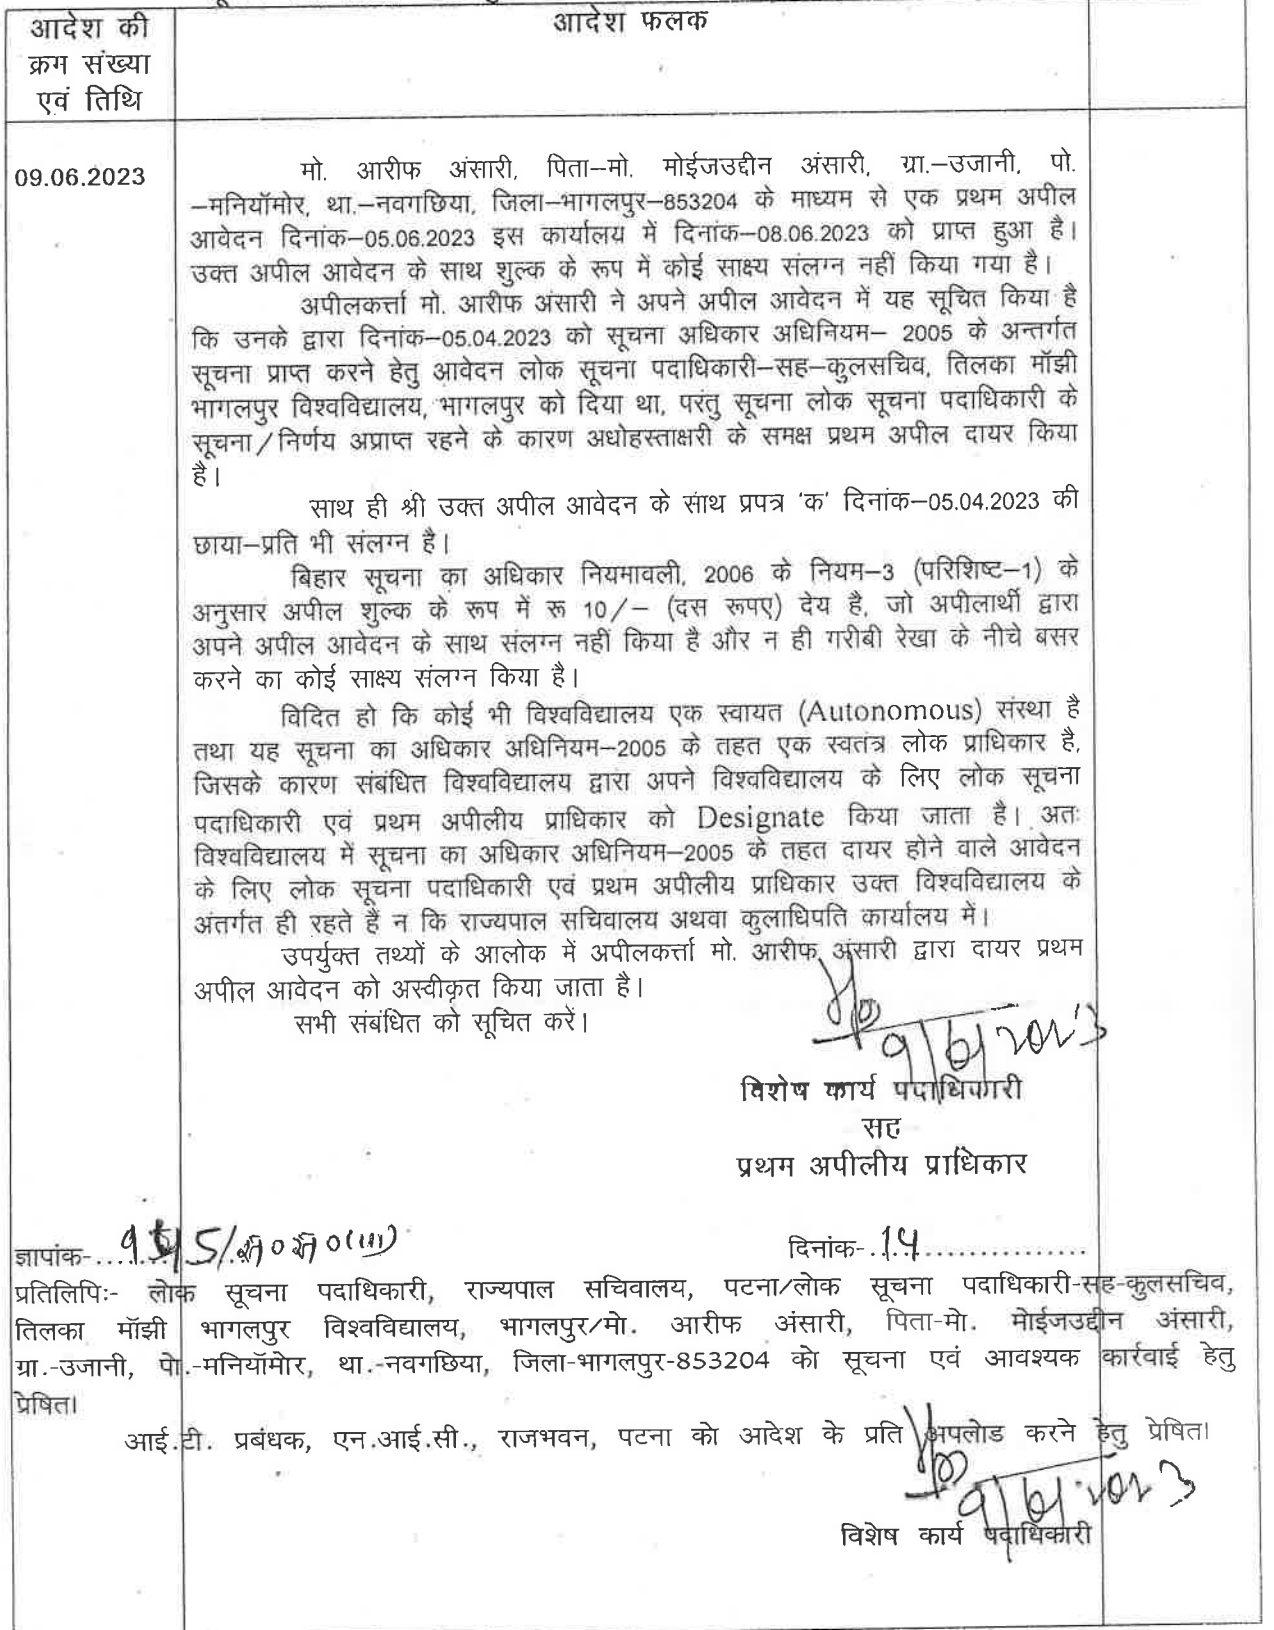 आदेश की
क्रम संख्या
एवं तिथि
आदेश फलक
09.06.2023
मो. आरीफ अंसारी, पिता–मो. मोईजउद्दीन अंसारी, ग्रा.–उजानी, पो.
–मनियॉमोर, था.–नवगछिया, जिला–भागलपुर–853204 के माध्यम से एक प्रथम अपील
आवेदन दिनांक–05.06.2023 इस कार्यालय में दिनांक–08.06.2023 को प्राप्त हुआ है।
उक्त अपील आवेदन के साथ शुल्क के रूप में कोई साक्ष्य संलग्न नहीं किया गया है।
अपीलकर्त्ता मो. आरीफ अंसारी ने अपने अपील आवेदन में यह सूचित किया है
कि उनके द्वारा दिनांक–05.04.2023 को सूचना अधिकार अधिनियम– 2005 के अन्तर्गत
सूचना प्राप्त करने हेतु आवेदन लोक सूचना पदाधिकारी–सह–कुलसचिव, तिलका मॉझी
भागलपुर विश्वविद्यालय, भागलपुर को दिया था, परंतु सूचना लोक सूचना पदाधिकारी के
सूचना/निर्णय अप्राप्त रहने के कारण अधोहस्ताक्षरी के समक्ष प्रथम अपील दायर किया
है।
साथ ही श्री उक्त अपील आवेदन के साथ प्रपत्र 'क' दिनांक–05.04.2023 की
छाया–प्रति भी संलग्न है।
बिहार सूचना का अधिकार नियमावली, 2006 के नियम–3 (परिशिष्ट–1) के
अनुसार अपील शुल्क के रूप में रू 10/– (दस रूपए) देय है, जो अपीलार्थी द्वारा
अपने अपील आवेदन के साथ संलग्न नहीं किया है और न ही गरीबी रेखा के नीचे बसर
करने का कोई साक्ष्य संलग्न किया है।
विदित हो कि कोई भी विश्वविद्यालय एक स्वायत (Autonomous) संस्था है
तथा यह सूचना का अधिकार अधिनियम–2005 के तहत एक स्वतंत्र लोक प्राधिकार है,
जिसके कारण संबंधित विश्वविद्यालय द्वारा अपने विश्वविद्यालय के लिए लोक सूचना
पदाधिकारी एवं प्रथम अपीलीय प्राधिकार को Designate किया जाता है। अतः
विश्वविद्यालय में सूचना का अधिकार अधिनियम–2005 के तहत दायर होने वाले आवेदन
के लिए लोक सूचना पदाधिकारी एवं प्रथम अपीलीय प्राधिकार उक्त विश्वविद्यालय के
अंतर्गत ही रहते हैं न कि राज्यपाल सचिवालय अथवा कुलाधिपति कार्यालय में।
उपर्युक्त तथ्यों के आलोक में अपीलकर्त्ता मो. आरीफ अंसारी द्वारा दायर प्रथम
अपील आवेदन को अस्वीकृत किया जाता है।
सभी संबंधित को सूचित करें।
9/6/2023
विशेष कार्य पदाधिकारी
सह
प्रथम अपीलीय प्राधिकार
ज्ञापांक-
दिनांक-.14
प्रतिलिपिः- लोक सूचना पदाधिकारी, राज्यपाल सचिवालय, पटना/लोक सूचना पदाधिकारी-सह-कुलसचिव,
तिलका मॉझी भागलपुर विश्वविद्यालय, भागलपुर/मो. आरीफ अंसारी, पिता-मो. मोईजउद्दीन अंसारी,
ग्रा.-उजानी, पो.-मनियॉमोर, था.-नवगछिया, जिला-भागलपुर-853204 को सूचना एवं आवश्यक कार्रवाई हेतु
प्रेषित।
आई.टी. प्रबंधक, एन.आई.सी., राजभवन, पटना को आदेश के प्रति अपलोड करने हेतु प्रेषित।
9/6/2023
विशेष कार्य पदाधिकारी